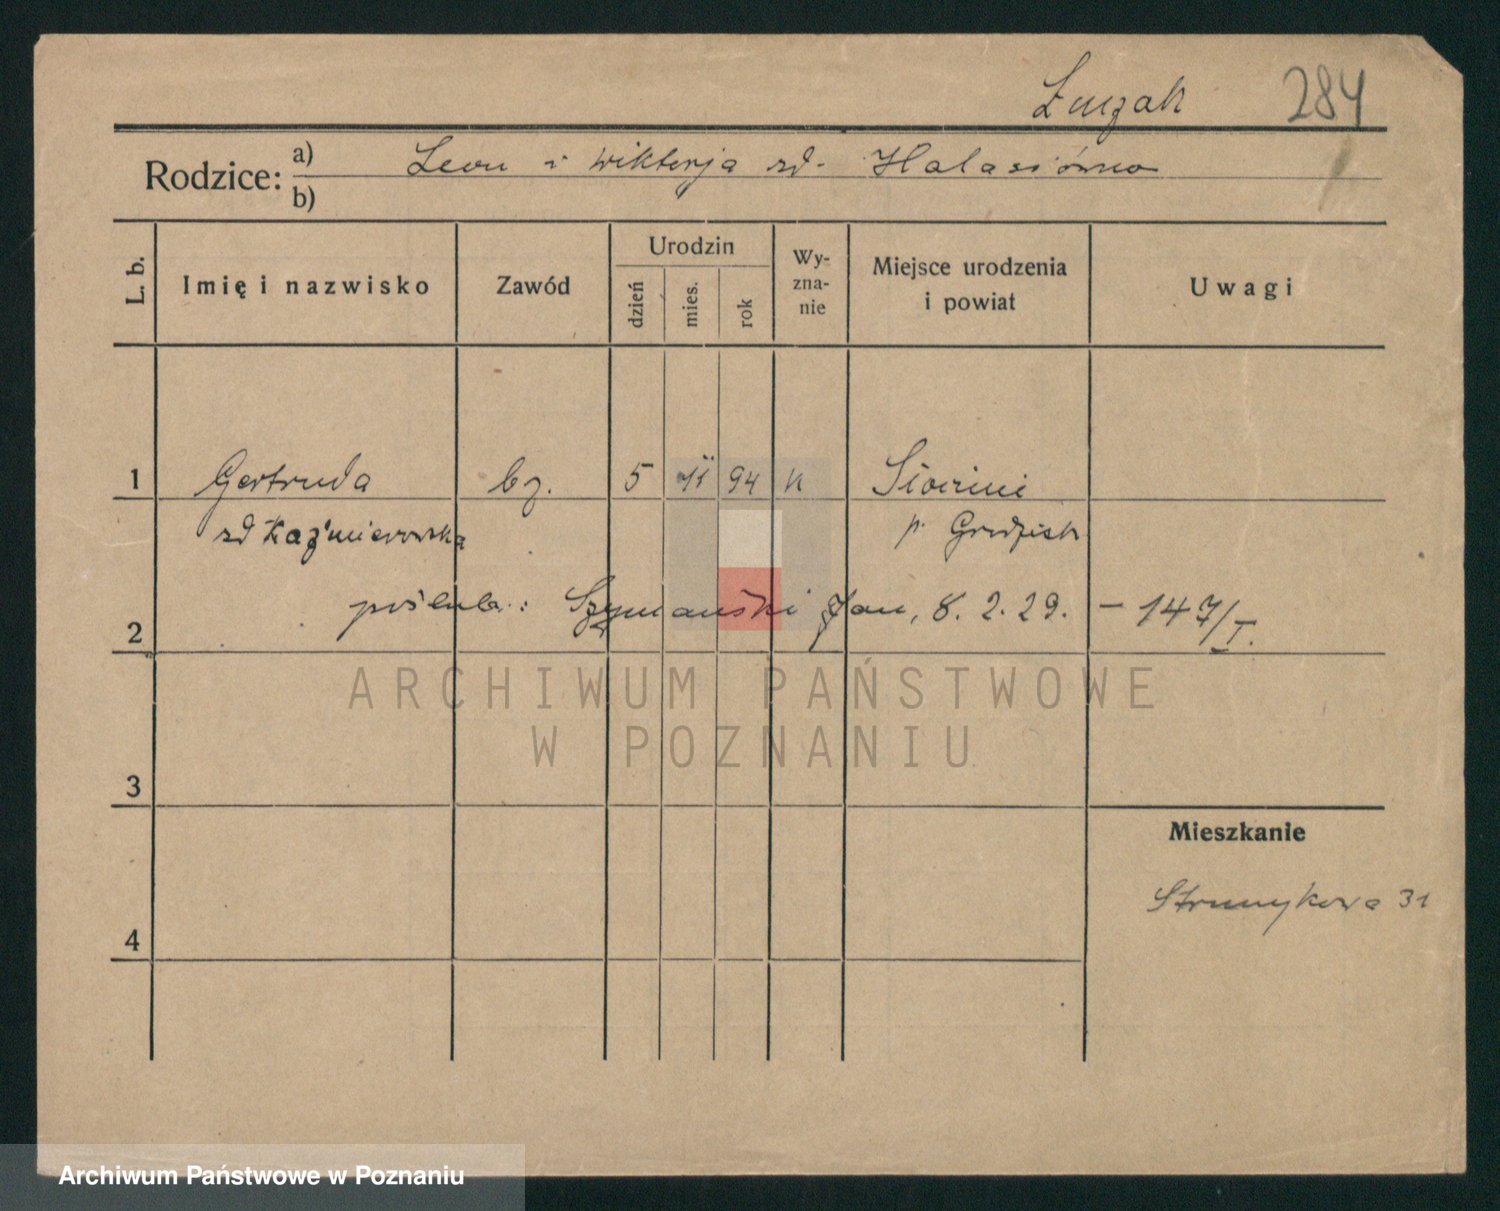 Żurzak 284
Rodzice: a) Leon i Wiktorja zd. Halasiówna
b)
L. b.
Imię i nazwisko
Zawód
Urodzin
dzień
mies.
rok
Wy-
zna-
nie
Miejsce urodzenia
i powiat
Uwagi
1 Gertruda bz. 5 11 94 k
zd Kaźmierowska p. Grodzisk
poślub.: Szymański Jan, 8. 2. 29. – 147/I.
2
ARCHIWUM PAŃSTWOWE
W POZNANIU
3
Mieszkanie
Strumykowa 31
4
Archiwum Państwowe w Poznaniu